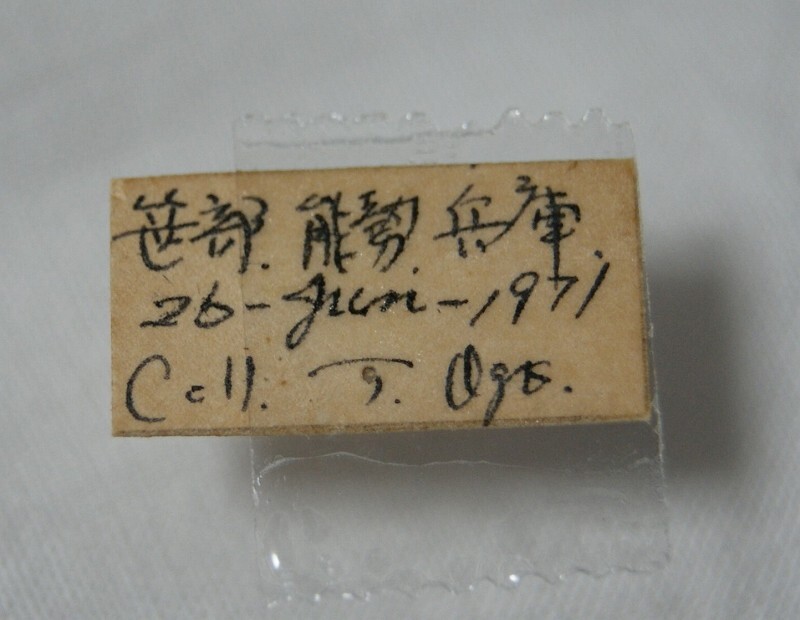 笹部. 能勢 兵庫.
26-Jun.-1971
Coll. T. Oge.